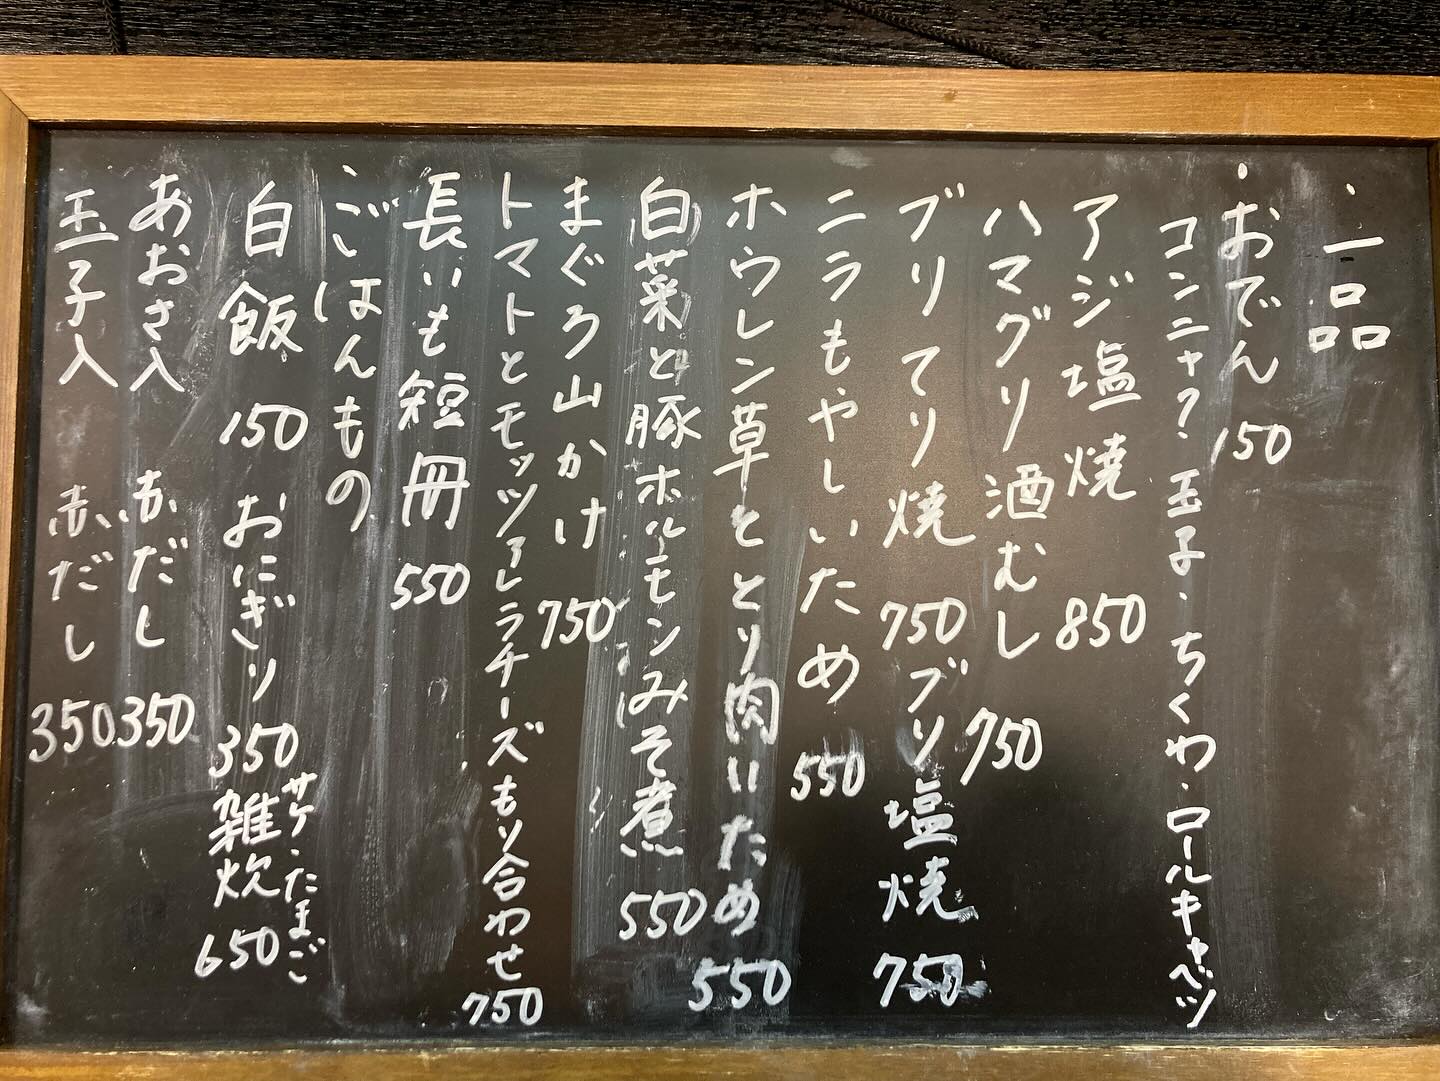 ・一品
・おでん 150
コンニャク・玉子・ちくわ・ロールキャベツ
アジ塩焼 850
ハマグリ酒むし 750
ブリてり焼 750 ブリ塩焼 750
ニラもやしいため 550
ホウレン草ととり肉いため 550
白菜と豚ホルモンみそ煮 550
まぐろ山かけ 750
トマトとモッツァレラチーズもり合わせ 750
長いも短冊 550
・ごはんもの
白飯 150 おにぎり 350 サケ・たまご 雑炊 650
あおさ入 赤だし 350
玉子入 赤だし 350